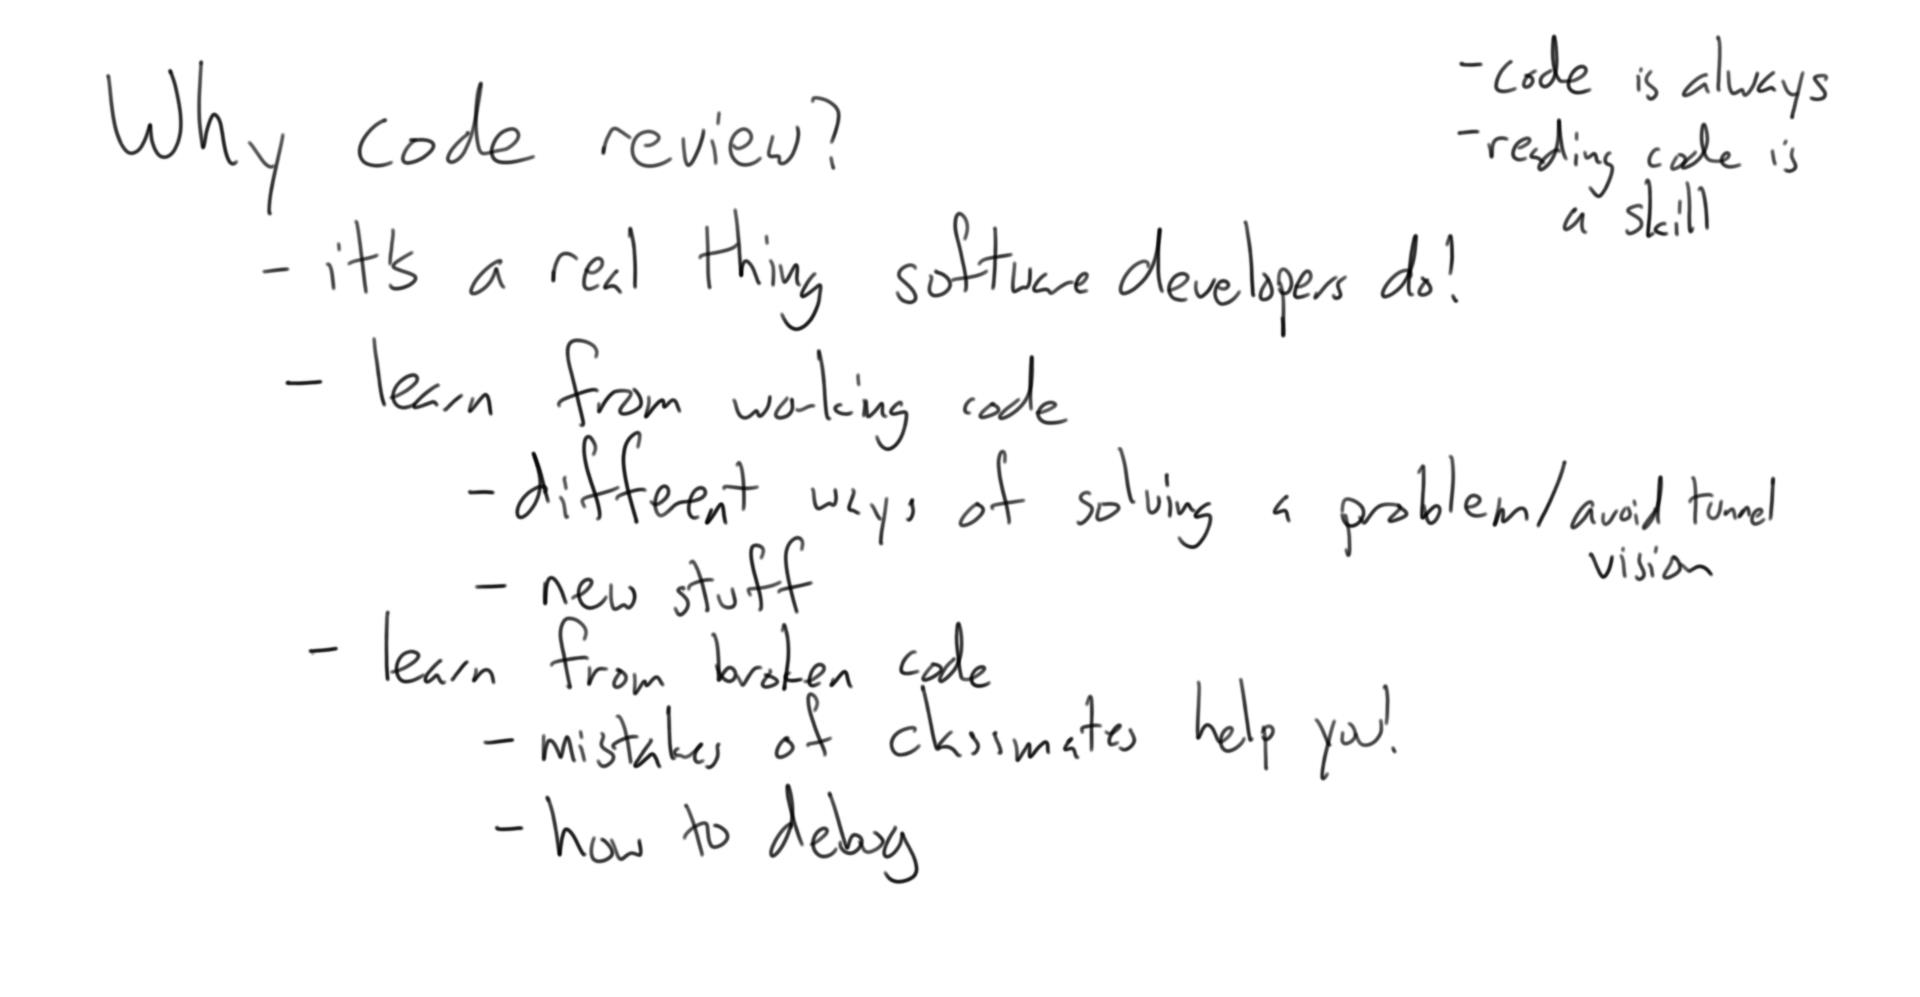 Why code review?
- it's a real thing software developers do!
- learn from working code
- different ways of solving a problem/avoid tunnel
vision
- new stuff
- learn from broken code
- mistakes of classmates help you!
- how to debug
- code is always
- reading code is
a skill